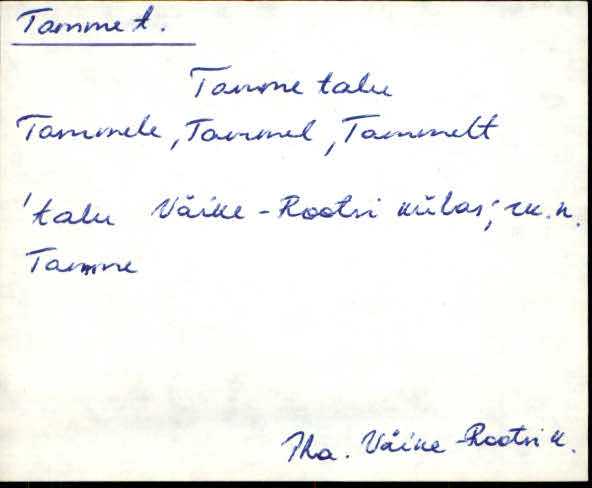 Tamme t.
Tamme talu
Tammele, Tammel, Tammelt
'talu Väike-Rootsi külas; rk. n.
Tamme
Pha. Väike-Rootsi k.